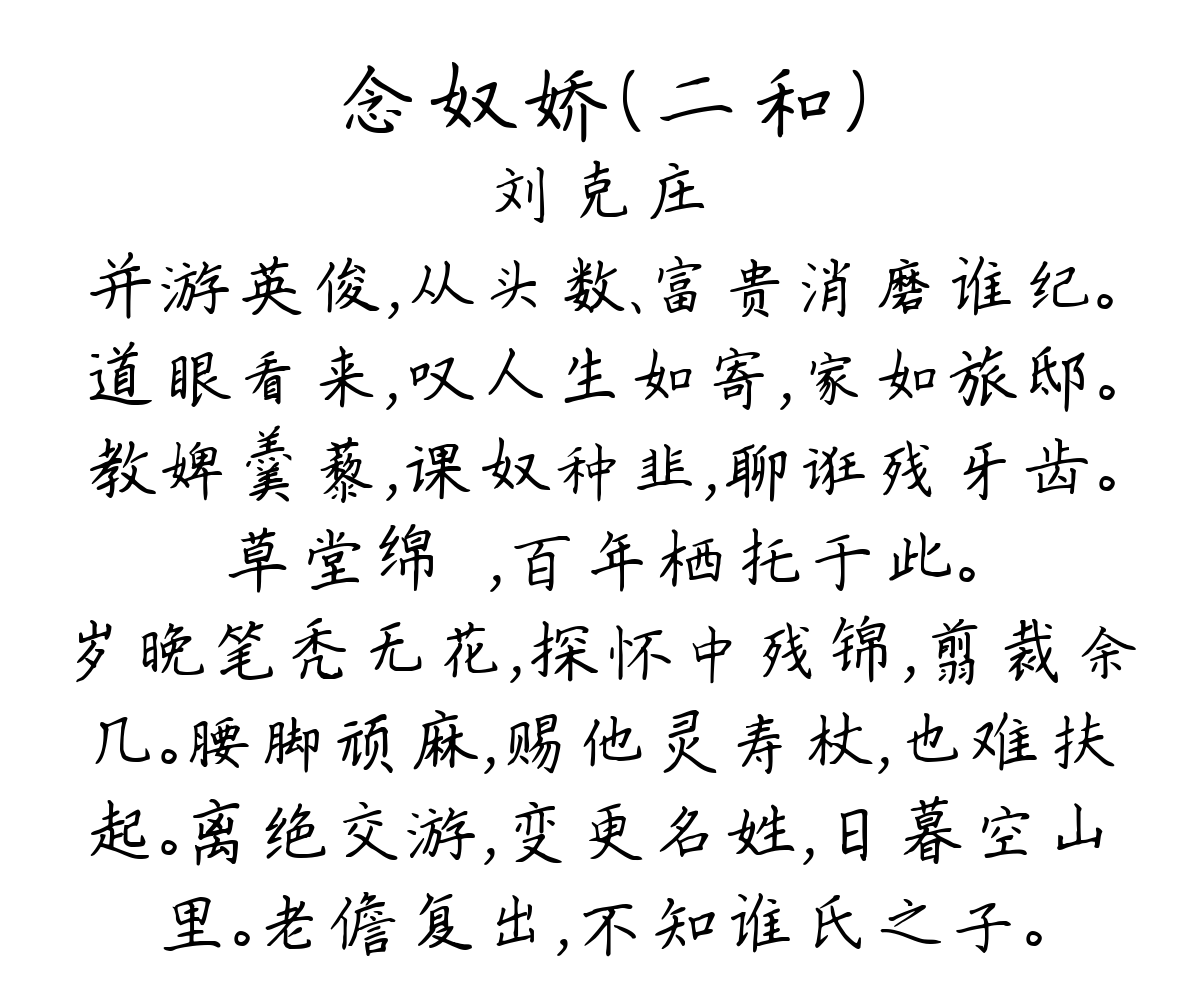 念奴娇(二和)
刘克庄
并游英俊,从头数、富贵消磨谁纪。
道眼看来,叹人生如寄,家如旅邸。
教婢羹藜,课奴种韭,聊诳残牙齿。
草堂绵 ,百年栖托于此。
岁晚笔秃无花,探怀中残锦,翦裁余
几。腰脚顽麻,赐他灵寿杖,也难扶
起。离绝交游,变更名姓,日暮空山
里。老儋复出,不知谁氏之子。